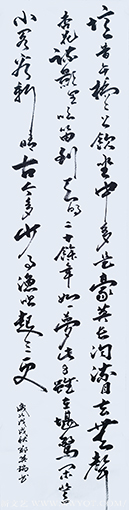 憶昔午橋々上飲坐中多是豪英長溝流月去無聲
杏花疏影里吹笛到天明二十餘年如一夢此身雖在堪驚閑登
小閣看新晴古今多少事漁唱起三更
歲次戊戌秋